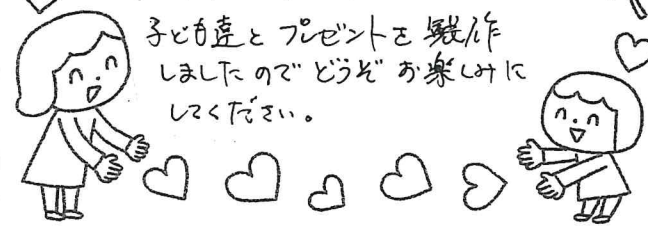 子ども達と プレゼントを 製作
しましたので どうぞ お楽しみに
してください。